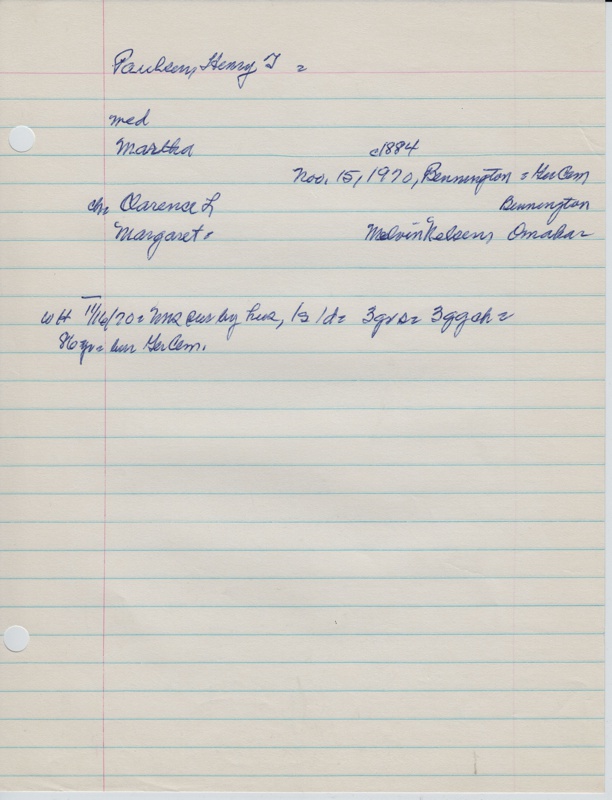 Paulsen, Henry T =
med
Martha c1884
Nov. 15, 1970, Bennington = Ger Cem
ch= Clarence L Bennington
Margaret = Melvin Nelsen, Omaha
WH 11/16/70 = Mrs sur by hus, 1s 1d = 3grs = 3ggch =
86 yr = bur Ger Cem.